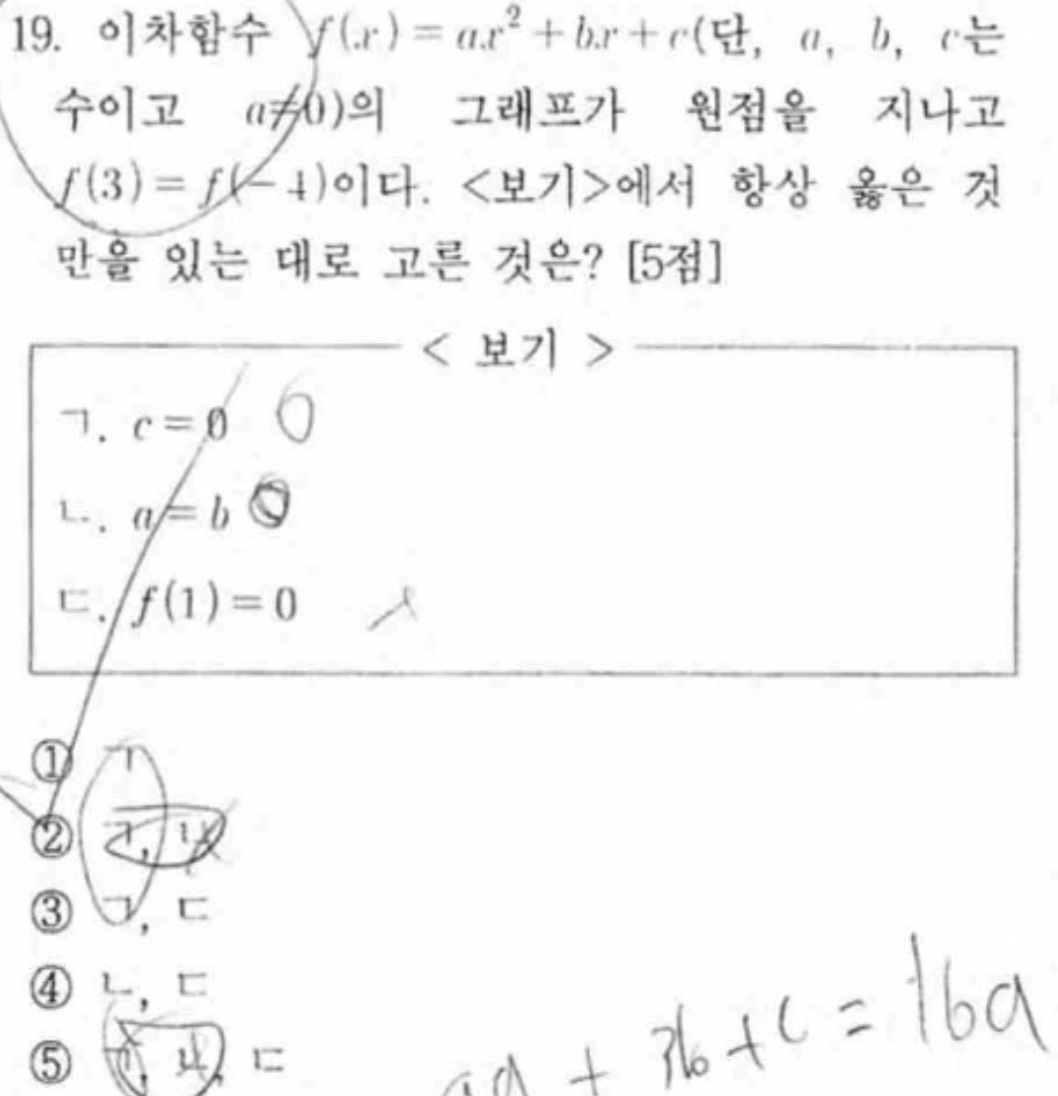 19. 이차함수 f(x)=ax²+bx+c(단, a, b, c는
수이고 a≠0)의 그래프가 원점을 지나고
f(3)=f(-4)이다. <보기>에서 항상 옳은 것
만을 있는 대로 고른 것은? [5점]
< 보기 >
ㄱ. c=0
ㄴ. a=b
ㄷ. f(1)=0
① ㄱ
② ㄱ, ㄴ
③ ㄱ, ㄷ
④ ㄴ, ㄷ
⑤ ㄱ, ㄴ, ㄷ
9a + 3b + c = 16a